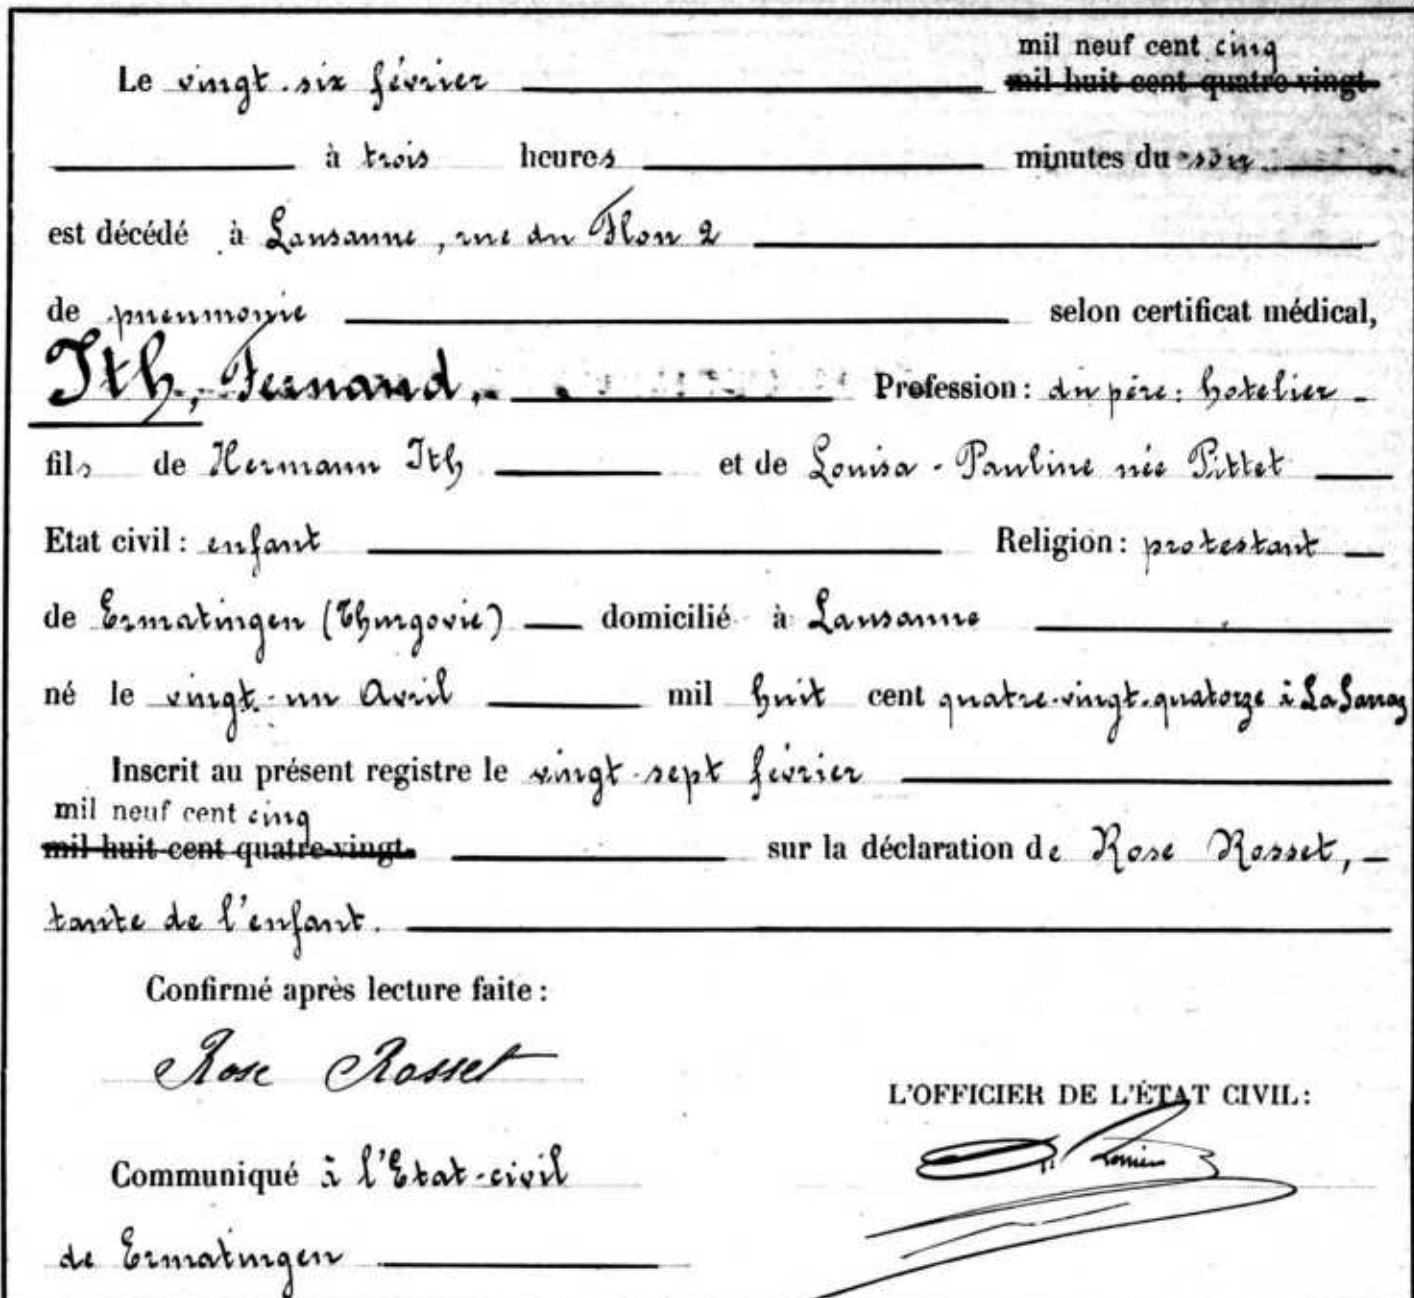 mil neuf cent cinq
Le vingt-six février mil huit cent quatre-vingt
à trois heures minutes du soir
est décédé à Lausanne, rue du Flon 2
de pneumonie selon certificat médical,
Ith, Fernand. Profession : du père : hotelier
fils de Hermann Ith et de Louisa-Pauline née Pittet
Etat civil : enfant Religion : protestant
de Ermatingen (Thurgovie) domicilié à Lausanne
né le vingt-un Avril mil huit cent quatre-vingt-quatorze à La Sarraz
Inscrit au présent registre le vingt-sept février
mil neuf cent cinq
mil huit cent quatre-vingt sur la déclaration de Rose Rosset,
tante de l'enfant.
Confirmé après lecture faite :
Rose Rosset
L'OFFICIER DE L'ÉTAT CIVIL :
Communiqué à l'Etat-civil
de Ermatingen